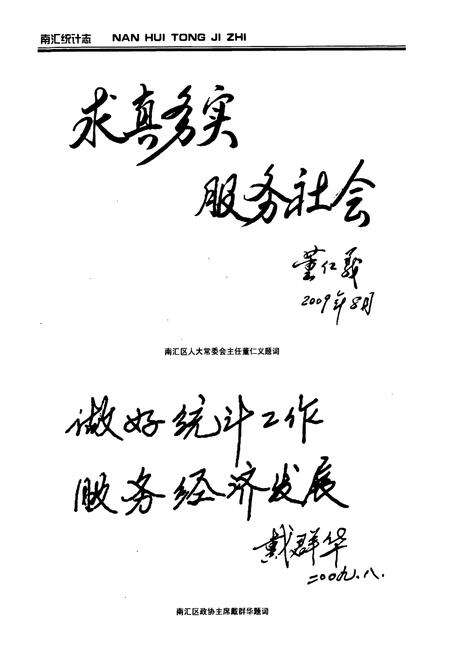 南汇统计志 NAN HUI TONG JI ZHI
求真务实
服务社会
董仁义
2009年8月
南汇区人大常委会主任董仁义题词
做好统计工作
服务经济发展
戴群华
二00九.八.
南汇区政协主席戴群华题词